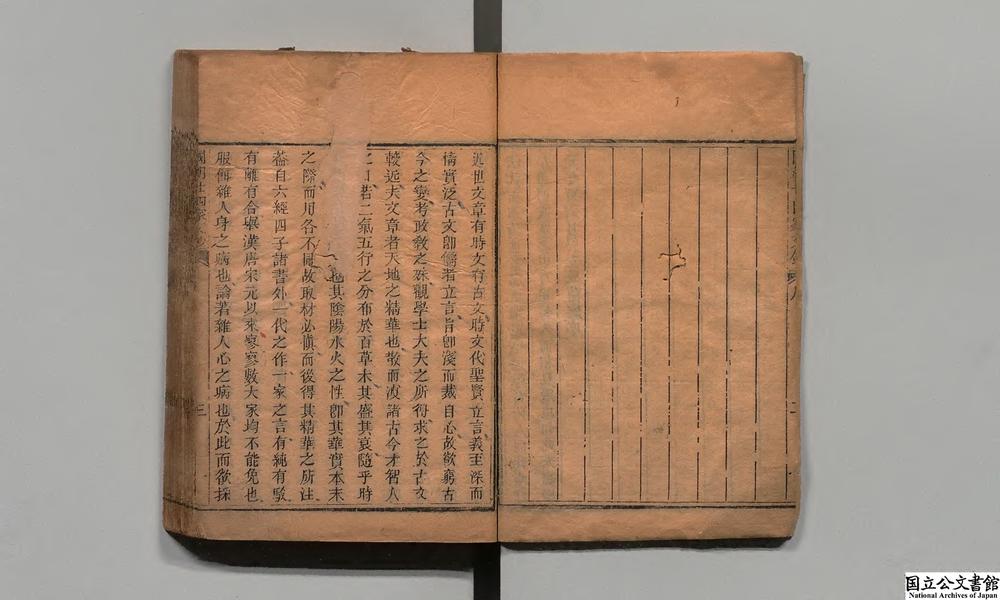 近世文章有時文有古文時文代聖賢立言義至深而
情實泛古文卽儕者立言旨卽淺而裁自心故欲窮古
今之變考政教之殊觀學士大夫之所得求之於古文
較近夫文章者天地之精華也散而淩諸古今才智人
之口若二氣五行之分布於百草木其盛其衰隨乎時
也其陰陽水火之性卽其華實本末
之際而用各不同故取材必愼而後得其精華之所注
蓋自六經四子諸書外一代之作一家之言有純有駁
有離有合舉漢唐宋元以來寥寥數大家均不能免也
服餌雜人身之病也論著雜人心之病也於此而欲採
三
国立公文書館
National Archives of Japan